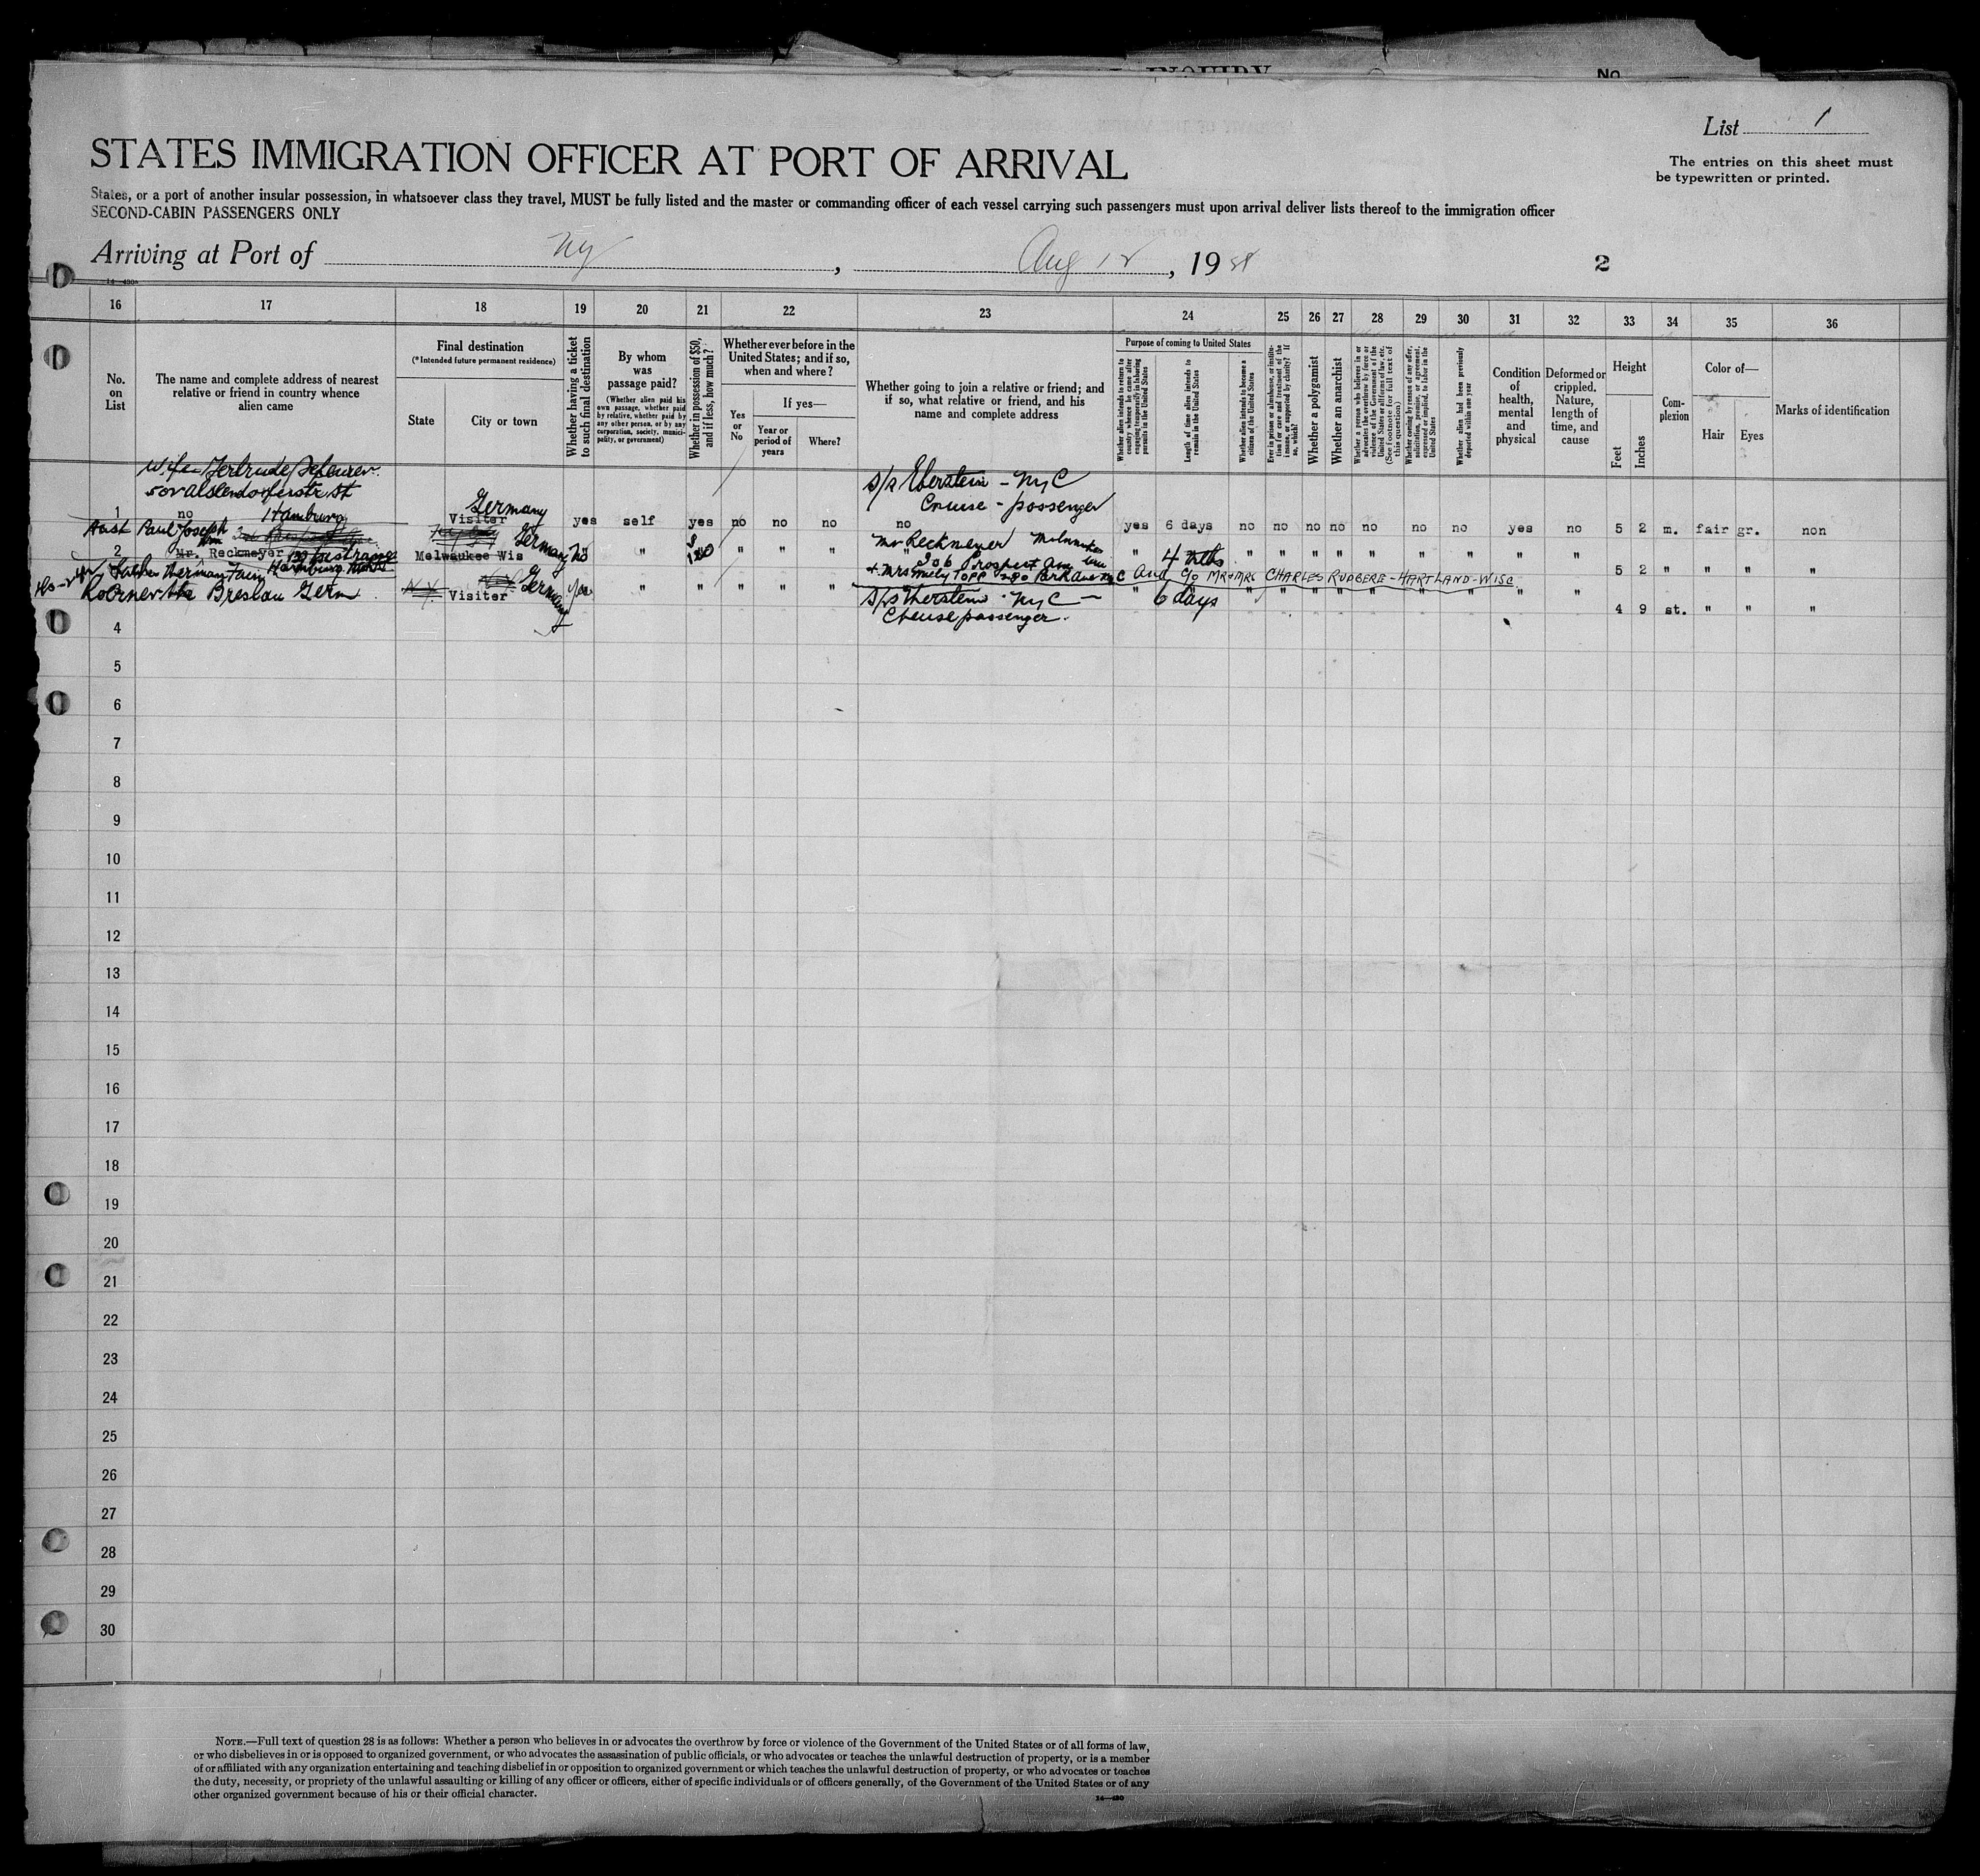 INQUIRY
No.
List 1
STATES IMMIGRATION OFFICER AT PORT OF ARRIVAL
The entries on this sheet must
be typewritten or printed.
States, or a port of another insular possession, in whatsoever class they travel, MUST be fully listed and the master or commanding officer of each vessel carrying such passengers must upon arrival deliver lists thereof to the immigration officer
SECOND-CABIN PASSENGERS ONLY
Arriving at Port of NY, Aug 12, 19
2
16 17 18 19 20 21 22 23 24 25 26 27 28 29 30 31 32 33 34 35 36
No. on List
The name and complete address of nearest relative or friend in country whence alien came
Final destination
(*Intended future permanent residence)
State
City or town
Whether having a ticket to such final destination
By whom was passage paid?
(Whether alien paid his own passage, whether paid by relative, whether paid by any other person, or by any corporation, society, municipality, or government)
Whether in possession of $50, and if less, how much?
Whether ever before in the United States; and if so, when and where?
Yes or No
If yes—
Year or period of years
Where?
Whether going to join a relative or friend; and if so, what relative or friend, and his name and complete address
Purpose of coming to United States
Whether alien intends to return to country whence he came after engaging temporarily in laboring pursuits in the United States
Length of time alien intends to remain in the United States
Whether alien intends to become a citizen of the United States
Ever in prison or almshouse, or institution for care and treatment of the insane, or supported by charity? If so, which?
Whether a polygamist
Whether an anarchist
Whether a person who believes in or advocates the overthrow by force or violence of the Government of the United States or all forms of law, etc. (See footnote for full text of this question)
Whether coming by reason of any offer, solicitation, promise, or agreement, expressed or implied, to labor in the United States
Whether alien had been previously deported within one year
Condition of health, mental and physical
Deformed or crippled. Nature, length of time, and cause
Height
Feet
Inches
Complexion
Color of—
Hair
Eyes
Marks of identification
Wife Gertrude
Hamburg
Germany
NYC
Cruise - passenger
1 no Visiter yes self yes no no no no yes 6 days no no no no no no no yes no 5 2 m. fair gr. non
Paul Joseph
2 Mr. Reckmeyer Melwaukee Wis Germany No " " " " Mr Reckmeyer " 4 mths " " " " " " " " " 5 2 " " " "
306 Prospect Ave
Father Herman
Hamburg
+ Mrs Emily Topp 280 Park Ave NYC And c/o MR+MRS CHARLES RUDBERG - HARTLAND - WISC
Breslau Germ N.Y. Visiter Germany yes " " " " " NYC " 6 days " " " " " " " " " 4 9 st. " " "
passenger.
4
5
6
7
8
9
10
11
12
13
14
15
16
17
18
19
20
21
22
23
24
25
26
27
28
29
30
NOTE.—Full text of question 28 is as follows: Whether a person who believes in or advocates the overthrow by force or violence of the Government of the United States or of all forms of law,
or who disbelieves in or is opposed to organized government, or who advocates the assassination of public officials, or who advocates or teaches the unlawful destruction of property, or is a member
of or affiliated with any organization entertaining and teaching disbelief in or opposition to organized government or which teaches the unlawful destruction of property, or who advocates or teaches
the duty, necessity, or propriety of the unlawful assaulting or killing of any officer or officers, either of specific individuals or of officers generally, of the Government of the United States or of any
other organized government because of his or their official character.
14—430